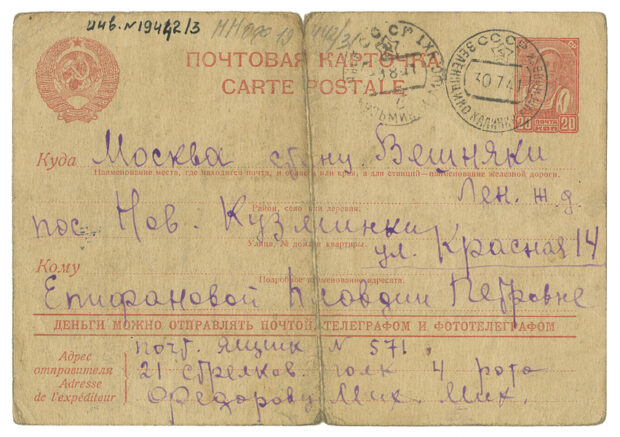 инв. N 19442/3
ПОЧТОВАЯ КАРТОЧКА
CARTE POSTALE
СССР
30 7 41
20 ПОЧТА 20
КОП
Куда Москва станц Вешняки
Наименование места, где находится почта, и области или края, а для станций—наименование железной дороги.
Лен. ж. д.
Район, село или деревня.
пос. Нов. Кузминки
Улица, № дома и квартиры.
ул. Красная 14
Кому
Подробное наименование адресата.
Епифановой Клавдии Петровне
ДЕНЬГИ МОЖНО ОТПРАВЛЯТЬ ПОЧТОЙ, ТЕЛЕГРАФОМ И ФОТОТЕЛЕГРАФОМ
Адрес отправителя
Adresse de l'expéditeur
почт. ящик N 571,
21 стрелков. полк 4 рота
Федорову Мих. Мих.